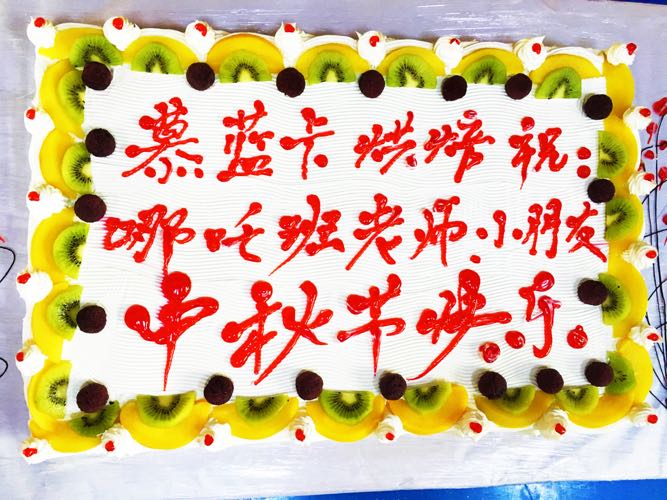 慕蓝卡烘焙祝:
哪吒班老师.小朋友
中秋节快乐.